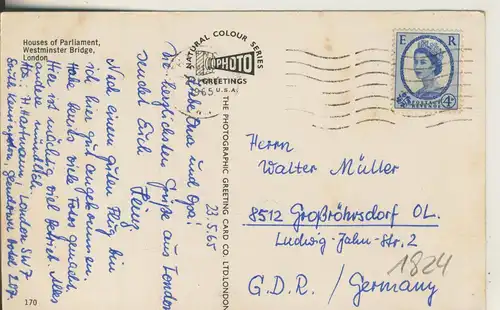 Houses of Parliament,
Westminster Bridge,
London
NATURAL COLOUR SERIES
PHOTO
GREETINGS
U.S.A.
1965
E R
POSTAGE
4D
THE PHOTOGRAPHIC GREETING CARD CO. LTD. LONDON
23.5.65
Liebe Oma und Opa!
Die herzlichsten Grüße aus London
sendet Euch
Heinz
Nach einem guten Flug bin
ich hier gut angekommen.
Habe bereits viele Fotos gemacht.
Hier ist mächtig viel Betrieb. Alles
andere mündlich.
H. Hartmann, London SW7
South Kensington, Hotel 207
Herrn
Walter Müller
8512 Großröhrsdorf OL.
Ludwig-Jahn-Str. 2
G.D.R. / Germany
1824
170